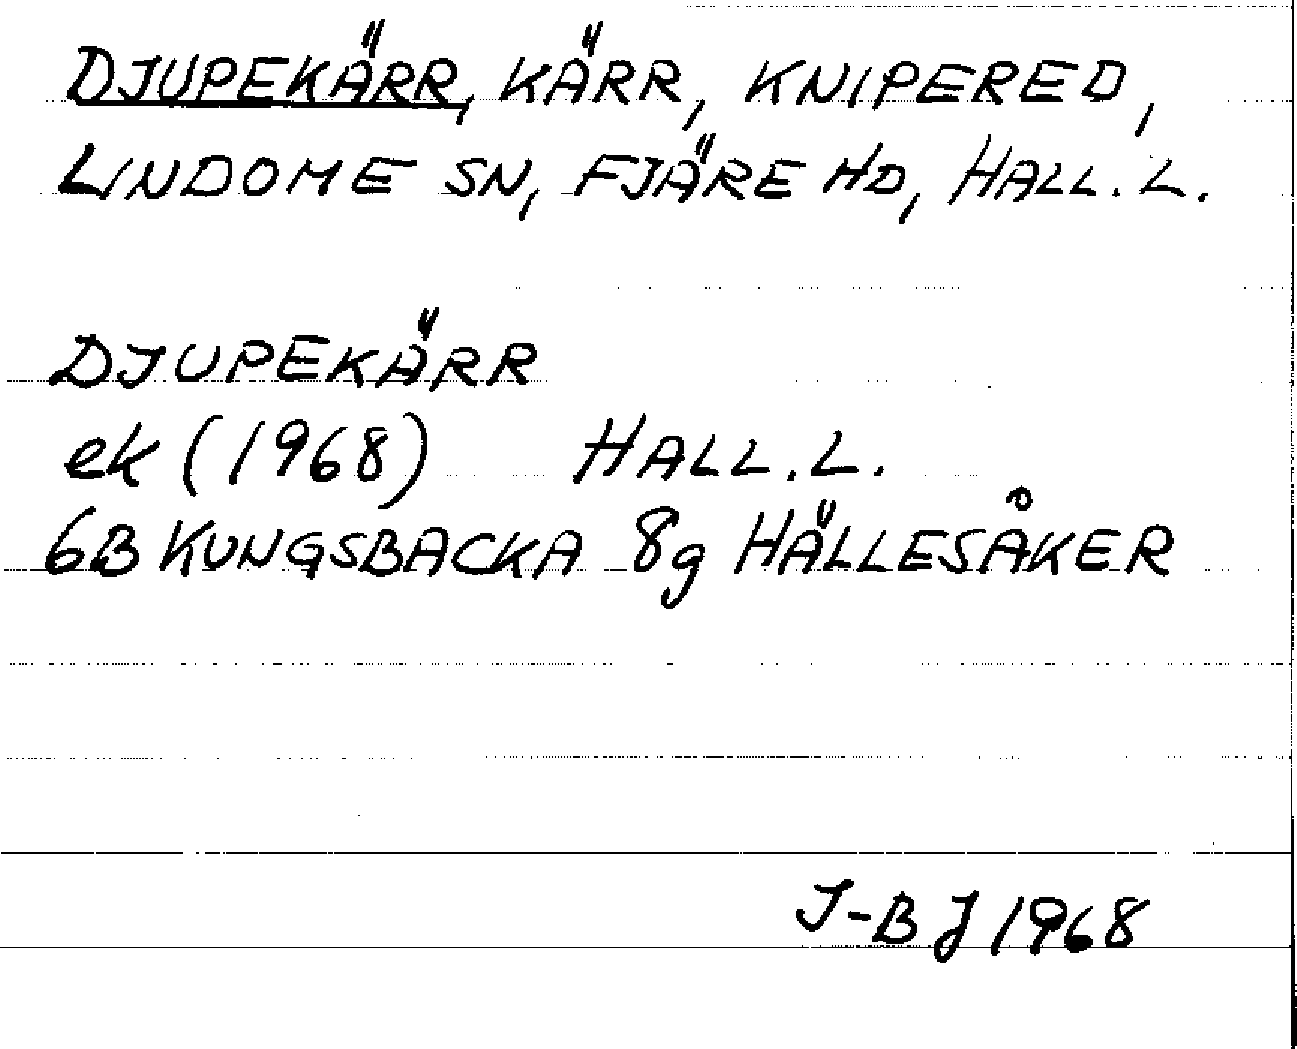 DJUPEKÄRR, KÄRR, KNIPERED,
LINDOME SN, FJÄRE HD, HALL. L.
DJUPEKÄRR
ek (1968) HALL. L.
6B KUNGSBACKA 8g HÄLLESÅKER
J-BJ 1968